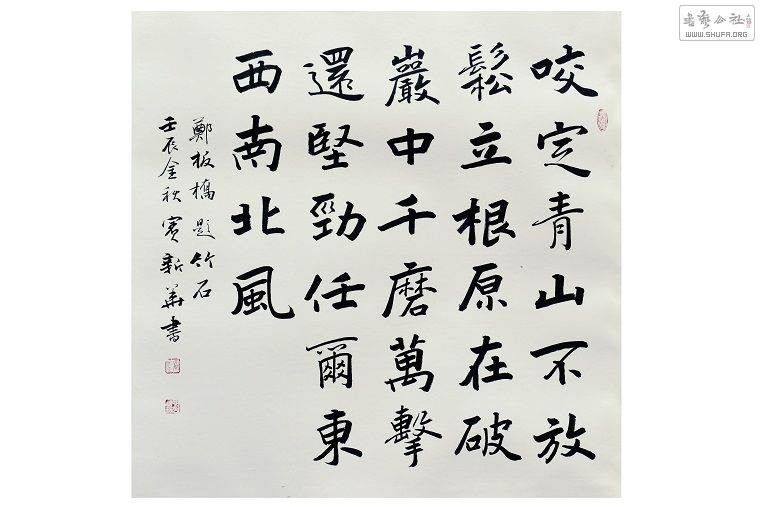 咬定青山不放
鬆立根原在破
巖中千磨萬擊
還堅勁任爾東
西南北風
鄭板橋題竹石
壬辰金秋賓新華書
書藝公社
WWW.SHUFA.ORG